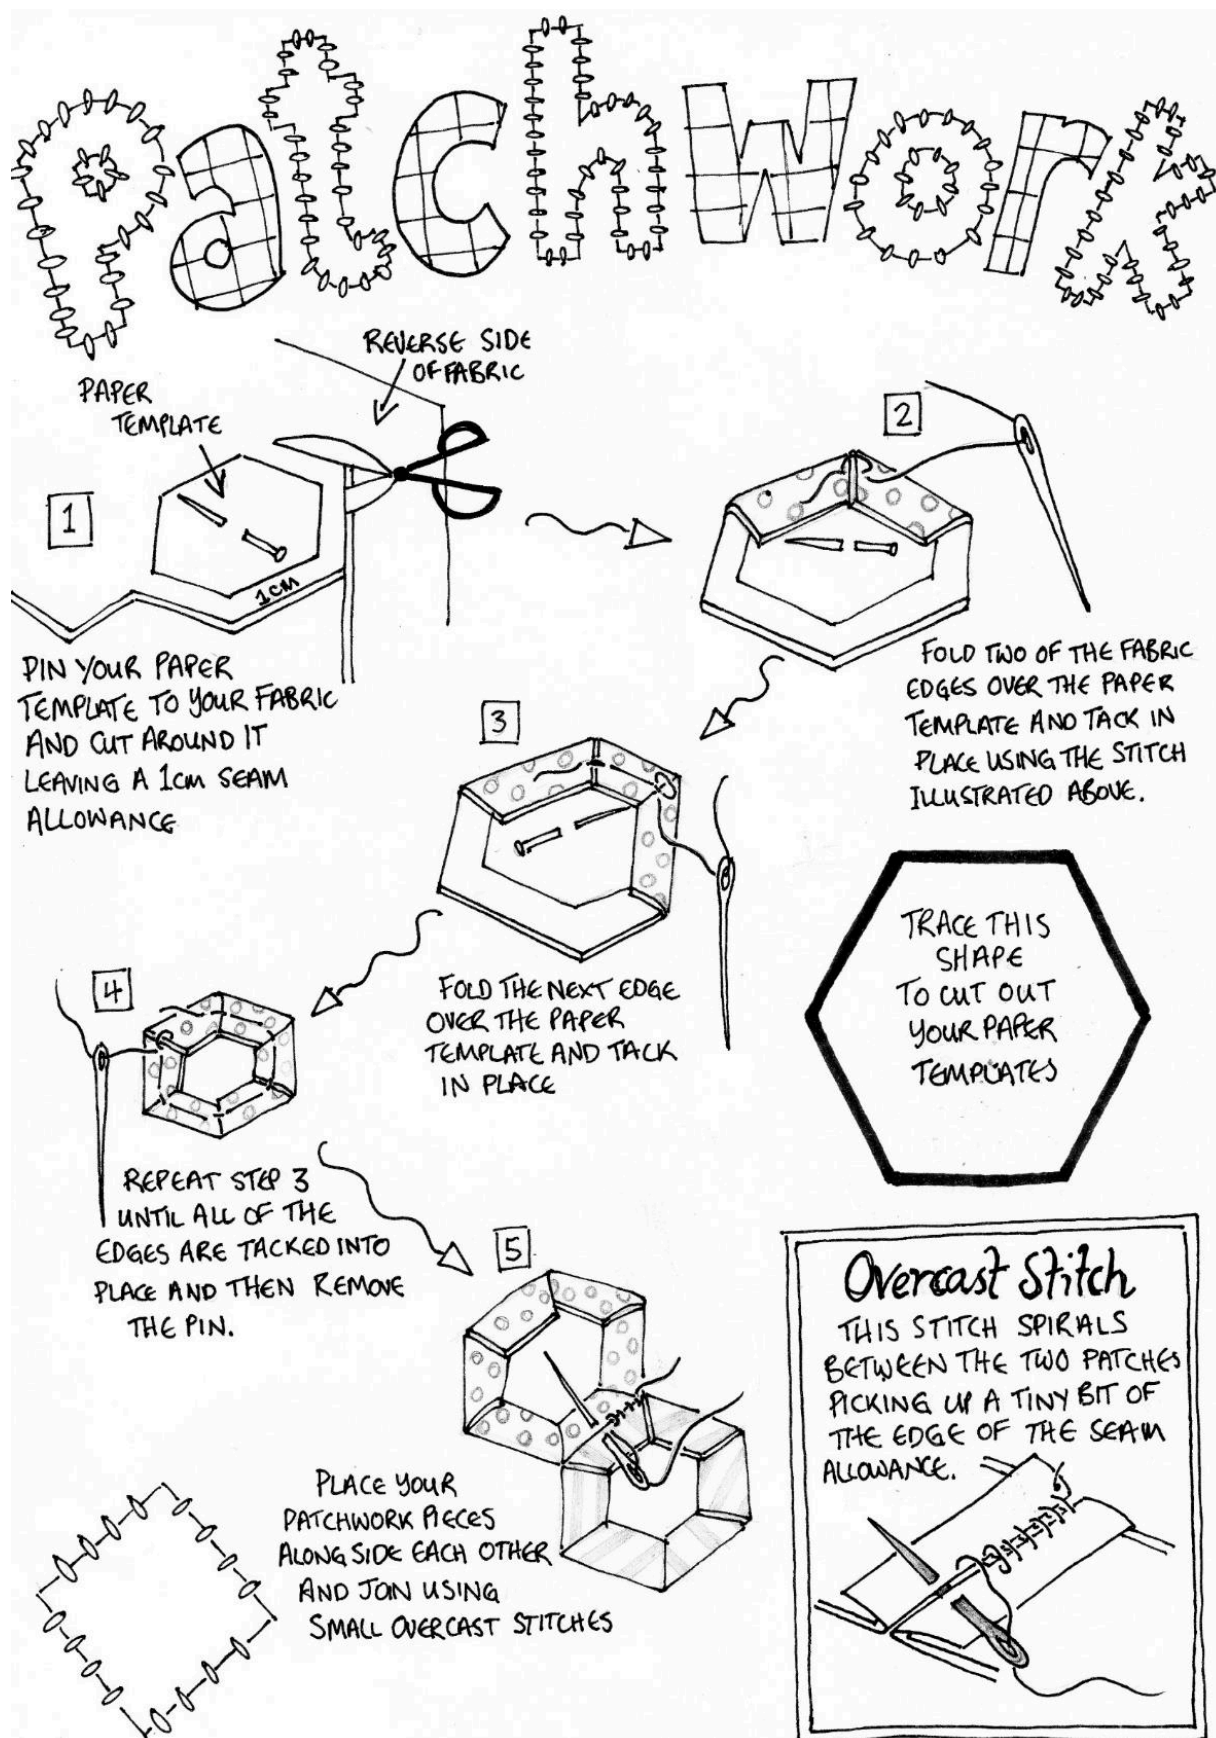 Patchwork
REVERSE SIDE
OF FABRIC
PAPER
TEMPLATE
1
1CM
PIN YOUR PAPER
TEMPLATE TO YOUR FABRIC
AND CUT AROUND IT
LEAVING A 1CM SEAM
ALLOWANCE
2
FOLD TWO OF THE FABRIC
EDGES OVER THE PAPER
TEMPLATE AND TACK IN
PLACE USING THE STITCH
ILLUSTRATED ABOVE.
3
FOLD THE NEXT EDGE
OVER THE PAPER
TEMPLATE AND TACK
IN PLACE
TRACE THIS
SHAPE
TO CUT OUT
YOUR PAPER
TEMPLATES
4
REPEAT STEP 3
UNTIL ALL OF THE
EDGES ARE TACKED INTO
PLACE AND THEN REMOVE
THE PIN.
5
PLACE YOUR
PATCHWORK PIECES
ALONG SIDE EACH OTHER
AND JOIN USING
SMALL OVERCAST STITCHES
Overcast Stitch
THIS STITCH SPIRALS
BETWEEN THE TWO PATCHES
PICKING UP A TINY BIT OF
THE EDGE OF THE SEAM
ALLOWANCE.